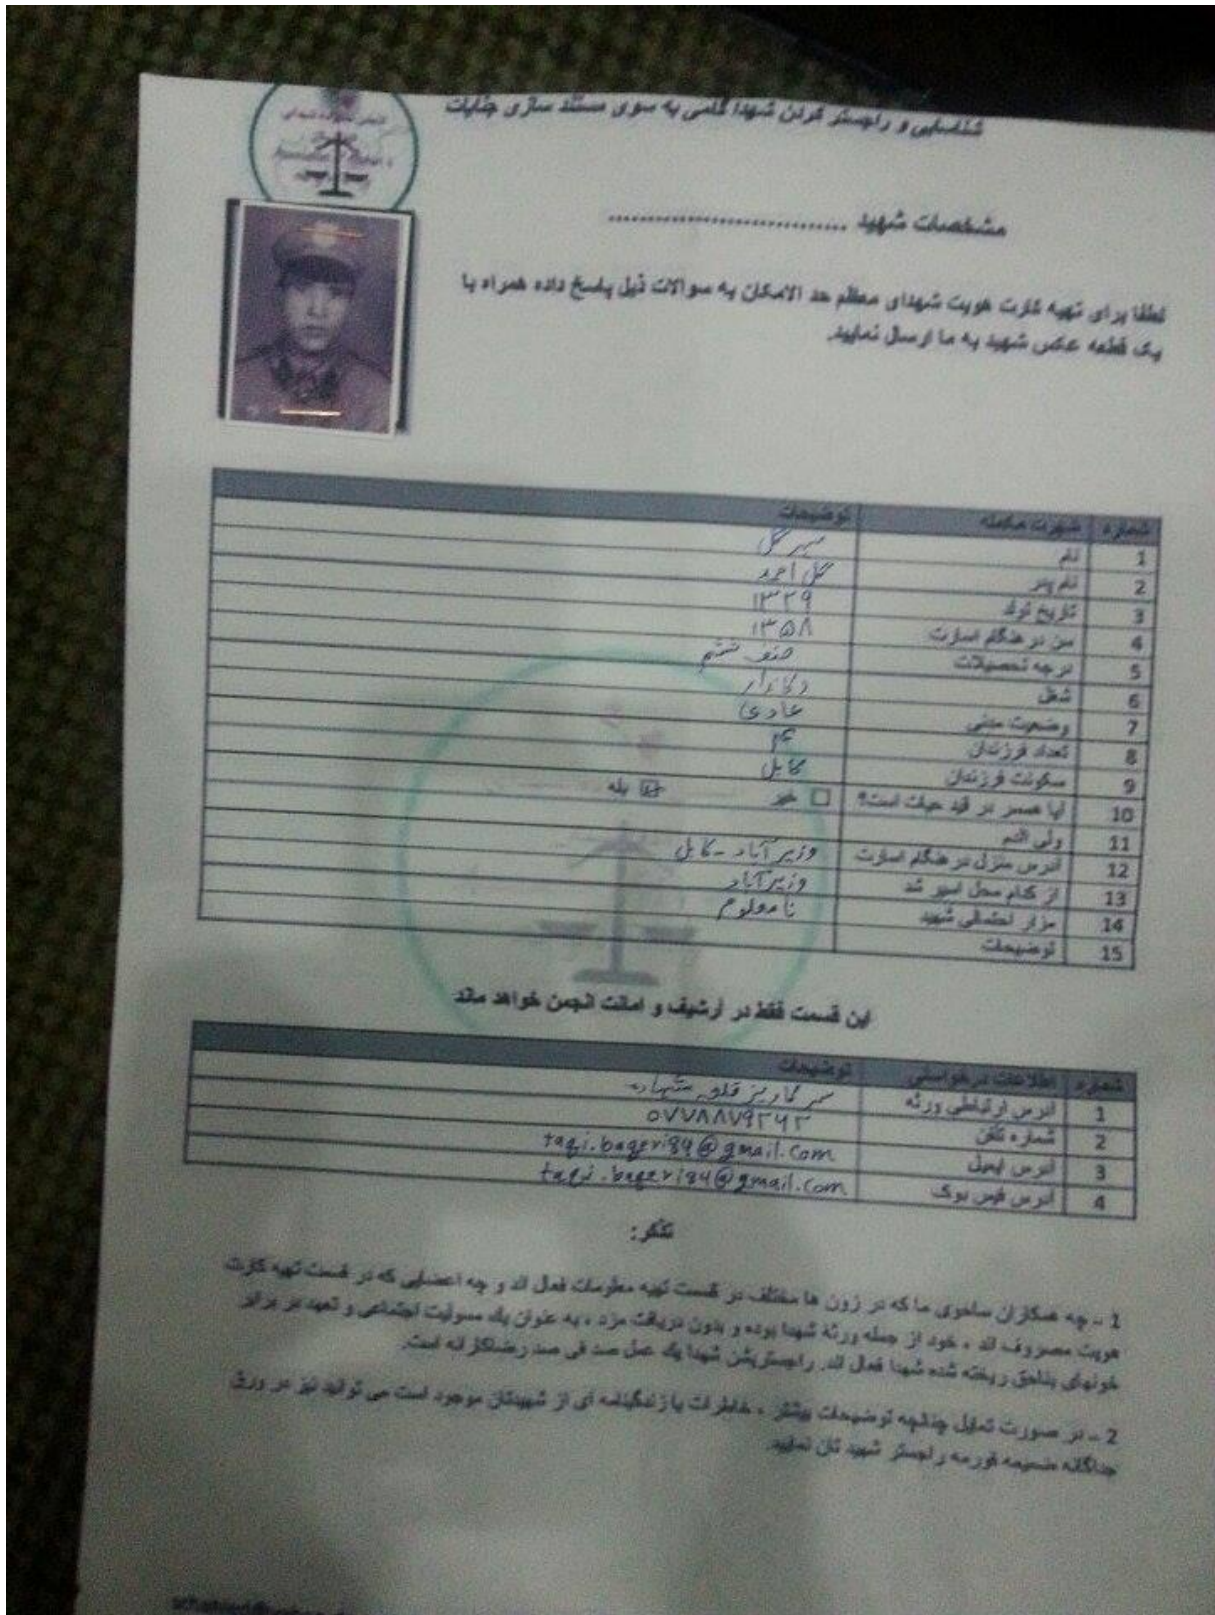 شناسایی و راجستر کردن شهدا گامی به سوی مستند سازی جنایات
مشخصات شهید ..............................
لطفا برای تهیه کارت هویت شهدای معظم حد الامکان به سوالات ذیل پاسخ داده همراه با
یک قطعه عکس شهید به ما ارسال نمایید.
شماره شهرت مکمله توضیحات
1 نام میر گل
2 نام پدر گل احمد
3 تاریخ تولد ۱۳۲۹
4 سن در هنگام اسارت ۱۳۵۸
5 درجه تحصیلات صنف
6 شغل دکاندار
7 وضعیت مدنی عادی
8 تعداد فرزندان
9 سکونت فرزندان کابل
10 آیا همسر در قید حیات است؟ خیر بله
11 ولی الدم
12 آدرس منزل در هنگام اسارت وزیر آباد - کابل
13 از کدام محل اسیر شد وزیر آباد
14 مزار احتمالی شهید نامعلوم
15 توضیحات
این قسمت فقط در آرشیف و امانت انجمن خواهد ماند
شماره اطلاعات درخواستی توضیحات
1 آدرس ارتباطی ورثه سر کاریز قلعه
2 شماره تلفن ۰۷۷۸۸۷۹۲۶۲
3 آدرس ایمیل taqi.baqeri84@gmail.com
4 آدرس فیس بوک taqi.baqeri84@gmail.com
تذکر:
1 - چه همکاران ساحوی ما که در زون ها مختلف در قسمت تهیه معلومات فعال اند و چه اعضایی که در قسمت تهیه کارت
هویت مصروف اند ، خود از جمله ورثه شهدا بوده و بدون دریافت مزد ، به عنوان یک مسولیت اجتماعی و تعهد در برابر
خونهای بناحق ریخته شده شهدا فعال اند. راجستریشن شهدا یک عمل صد فی صد رضاکارانه است.
2 - در صورت تمایل چنانچه توضیحات بیشتر ، خاطرات یا زندگینامه ای از شهیدتان موجود است می توانید نیز در ورق
جداگانه ضمیمه فورمه راجستر شهید تان نمایید.